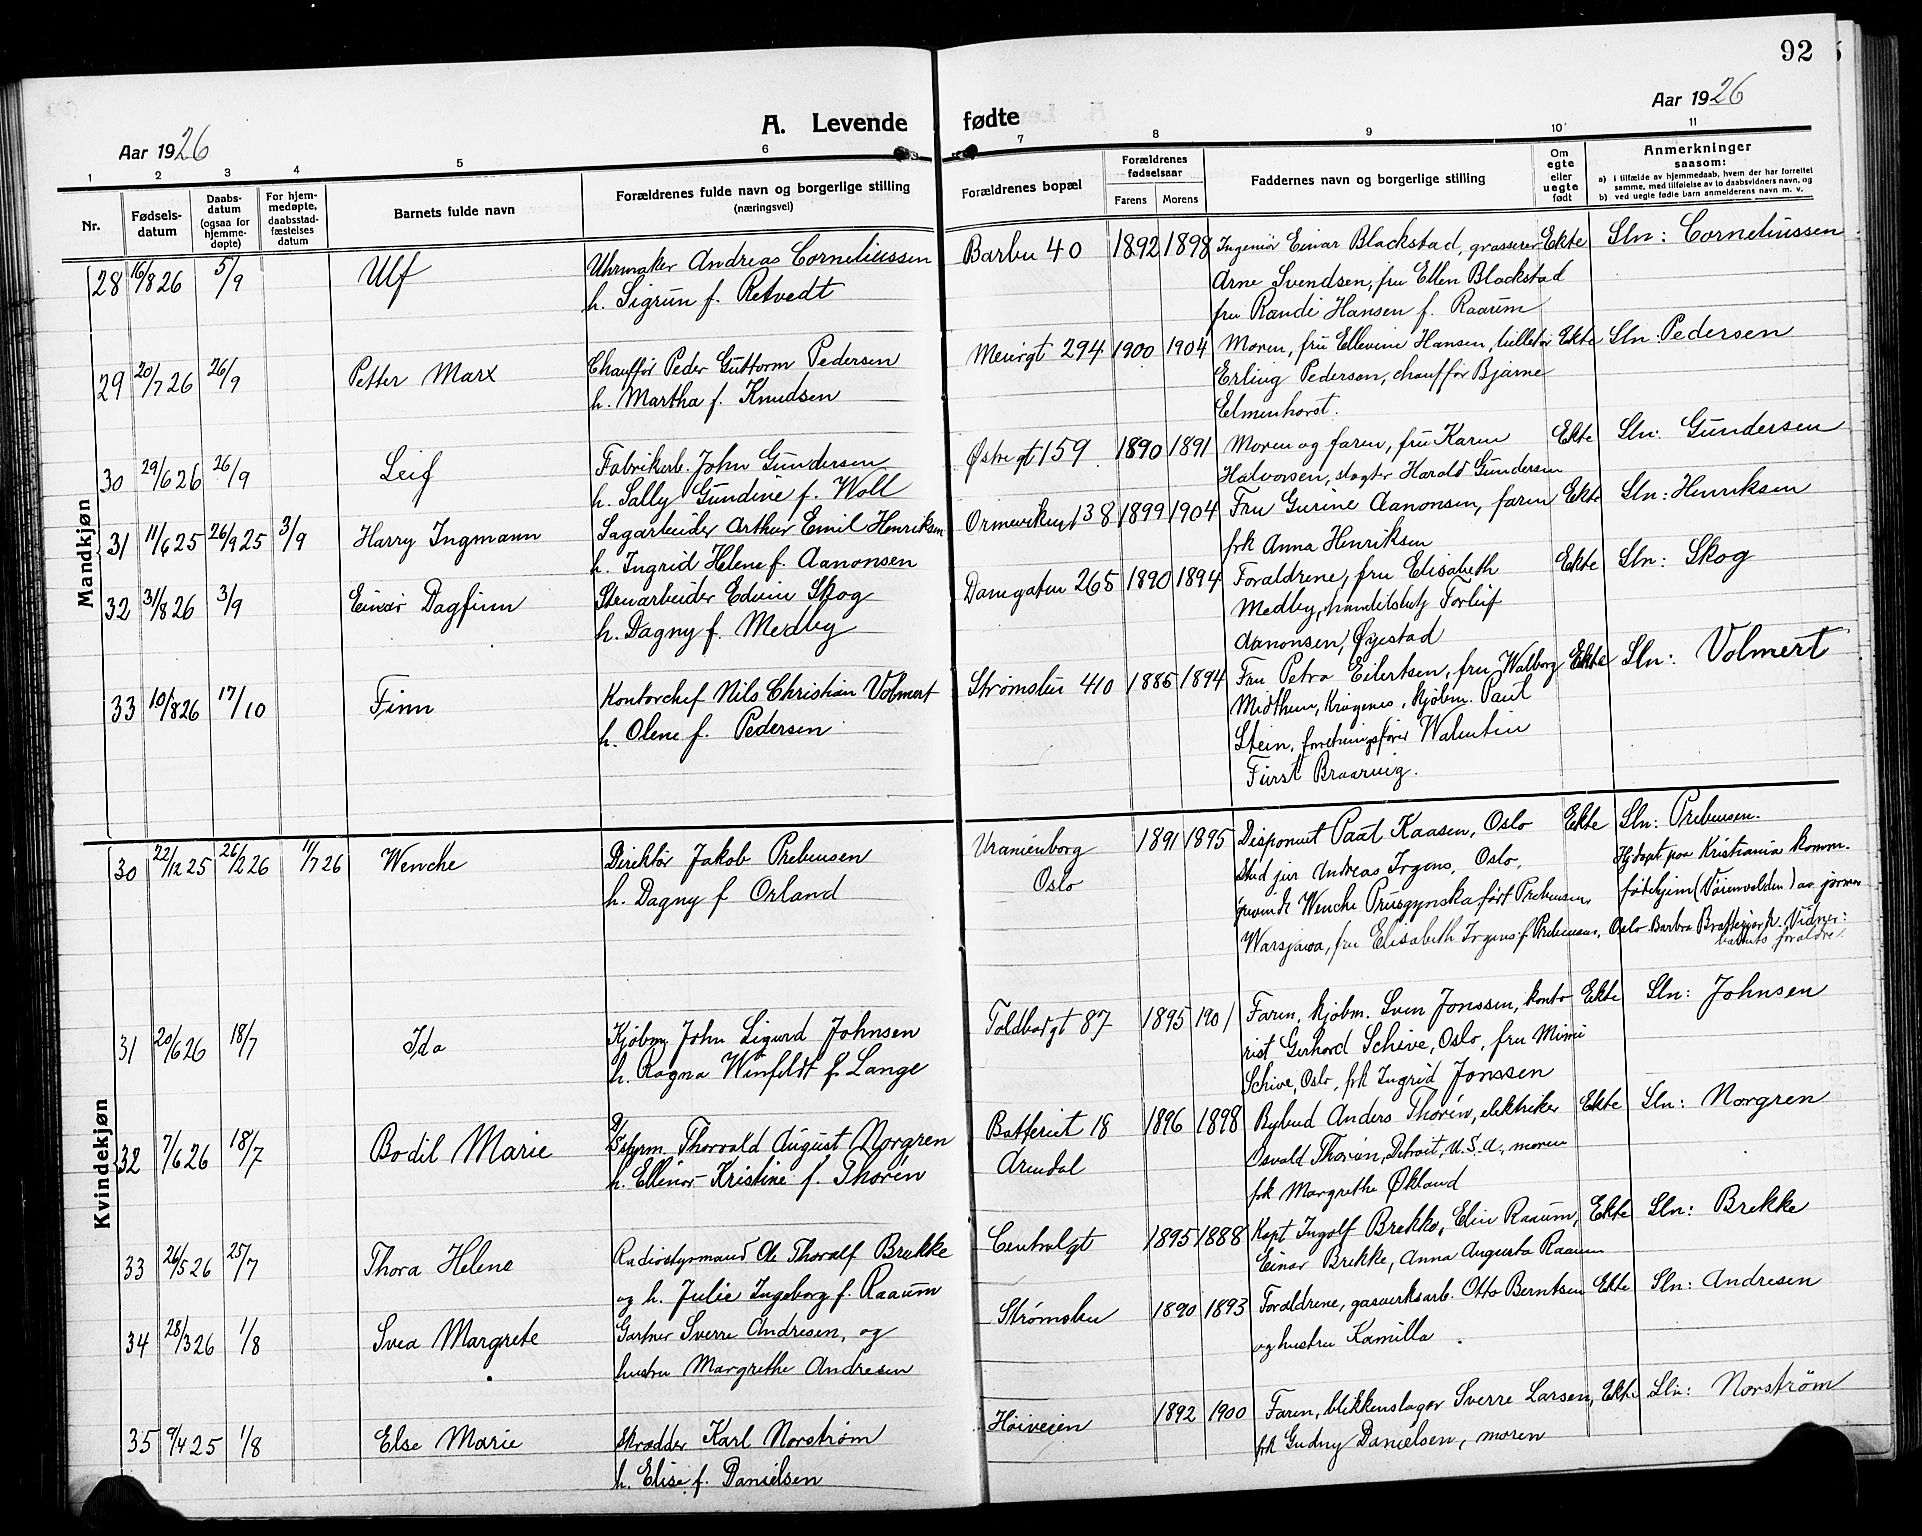 92
Aar 1926
A. Levende fødte
Aar 1926
1 2 3 4 5 6 7 8 9 10 11
Nr.
Fødsels-
datum
Daabs-
datum
(ogsaa for
hjemme-
døpte)
For hjem-
medøpte,
daabsstad-
fæstelses
datum
Barnets fulde navn
Forældrenes fulde navn og borgerlige stilling
(næringsvei)
Forældrenes bopæl
Forældrenes
fødselsaar
Farens Morens
Faddernes navn og borgerlige stilling
Om
egte
eller
uegte
født
Anmerkninger
saasom:
a) i tilfælde av hjemmedaab, hvem der har forrettet
samme, med tilføielse av to daabsvidners navn, og
b) ved uegte fødte barn anmelderens navn m. v.
Mandkjøn
28 16/8 26 5/9 Ulf
Uhrmaker Andreas Corneliussen
h. Sigrun f. Retvedt
Barbu 40 1892 1898
Ingeniør Einar Blackstad, grosserer
Arne Svendsen, fru Ellen Blackstad
fru Randi Hansen f. Raaum
Ekte Sln: Corneliussen
29 20/7 26 26/9 Petter Marx
Chauffør Peder Guttorm Pedersen
h. Martha f. Knudsen
294 1900 1904
Moren, fru Ellevine Hansen,
Erling Pedersen, chauffør Bjarne
Elmenhorst.
Ekte Sln: Pedersen
30 29/6 26 26/9 Leif
Fabrikarb. John Gundersen
h. Sally Gundine f. Woll
Østregt 159 1890 1891
Moren og faren, fru Karen
Halvorsen, slagter Harald Gundersen
Ekte Sln: Gundersen
31 11/6 25 26/9 25 3/9 Harry Ingmann
Sagarbeider Arthur Emil Henriksen
h. Ingrid Helene f. Aanonsen
138 1899 1904
Fru Gurine Aanonsen, faren
frk Anna Henriksen
Ekte Sln: Henriksen
32 31/8 26 3/9 Einar Dagfinn
Stenarbeider Edvin Skog
h. Dagny f. Medby
Damgaten 265 1890 1894
Forældrene, fru Elisabeth
Medby, handelsbetj Torleif
Aanonsen, Øyestad
Ekte Sln: Skog
33 10/8 26 17/10 Finn
Kontorchef Nils Christian Volmert
h. Olene f. Pedersen
Strømsbu 410 1885 1894
Fru Petra Eilertsen, fru Walborg
Midthun, Kragerø, kjøbm. Paul
Stein, forretningsfører Walentin
Fürst Braarvig.
Ekte Sln: Volmert
Kvindekjøn
30 22/12 25 26/2 26 11/7 26 Wenche
Direktør Jakob Prebensen
h. Dagny f Orland
Uranienborg
Oslo
1891 1895
Disponent Paal Kaasen, Oslo
Stud jur Andreas Irgens, Oslo,
grevinde Wenche født Prebensen,
Warsjawa, fru Elisabeth Irgens f Prebensen,
Ekte Sln: Prebensen.
Hjdøpt paa Kristiania komm.
fødehjem (Vøienvolden) av jormor
Oslo Barbra . Vidner:
barnets foraldre.
31 20/6 26 18/7 Ida
Kjøbm John Sigurd Johnsen
h. Ragna Winfeldt f. Lange
Toldbodgt 87 1895 1901
Faren, kjøbm. Sven Jonssen, konto
rist Gerhard Schive, Oslo, fru Mimi
Schive, Oslo, frk Ingrid Jonssen
Ekte Sln: Johnsen
32 7/6 26 18/7 Bodil Marie
Styrm. Thorvald August Norgren
h. Ellinor Kristine f. Thorén
Batteriet 18
Arendal
1896 1898
Bybud Anders Thorén, elektriker
Osvald Thorén, Detroit, U.S.A, moren
frk Margrethe Økland
Ekte Sln: Norgren
33 26/5 26 25/7 Thora Helene
Radiostyrmand Ole Thoralf Brekke
og h. Julie Ingeborg f. Raaum
Centralgt 1895 1888
Kapt Ingolf Brekke, Elin Raaum,
Einar Brekke, Anna Augusta Raaum
Ekte Sln: Brekke
34 28/3 26 1/8 Svea Margrete
Gartner Sverre Andresen, og
hustru Margrethe Andresen
Strømsbu 1890 1893
Foraldrene, gasverksarb. Otto Berntsen
og hustru Kamilla.
Ekte Sln: Andresen
35 9/4 25 1/8 Else Marie
Skrædder Karl Norstrøm
h. Elise f. Danielsen
Høiveien 1892 1900
Faren, blikkenslager Sverre Larsen,
frk Gudny Danielsen, moren
Ekte Sln: Norstrøm